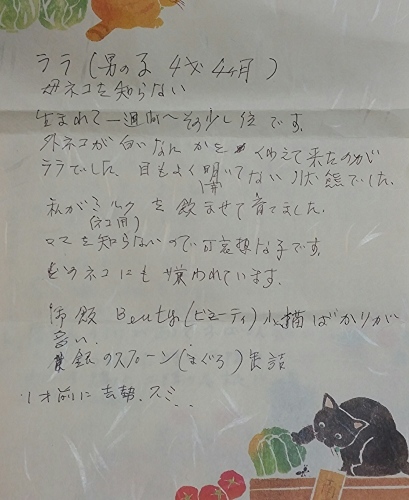 ララ(男の子 4才 4ヶ月)
母ネコを知らない
生まれて一週間〜その少し位です。
外ネコが白いなんかを くわえて来たのが
ララでした、目もよく開いてない状態でした。
私がミルク(ネコ用)を飲ませて育てました。
ママを知らないので可哀想な子です。
ネコにも嫌われています。
御飯 Beuty(ビューティ)小猫ばかりが
銀のスプーン(まぐろ)缶詰
1才前に去勢、スミ...